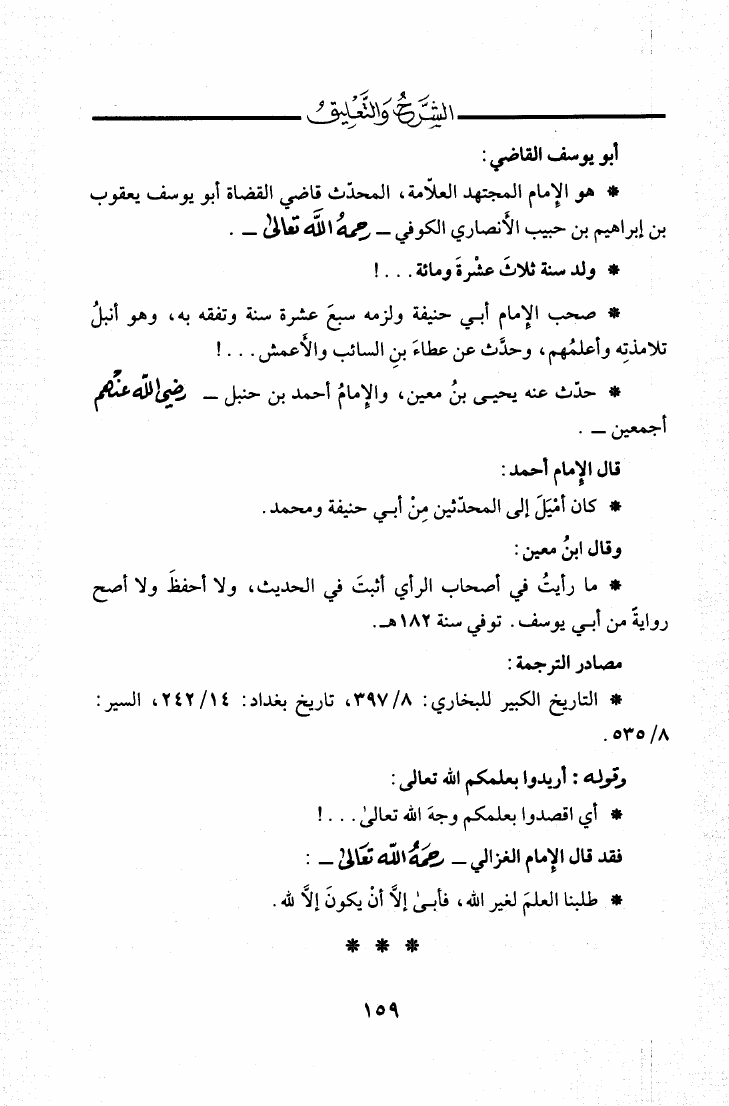 الشَّرحُ والتَّعليق
أبو يوسف القاضي:
* هو الإمام المجتهد العلاّمة، المحدّث قاضي القضاة أبو يوسف يعقوب
بن إبراهيم بن حبيب الأنصاري الكوفي ــ رحمهُ اللَّه تعالىٰ ــ .
* ولد سنة ثلاثَ عشْرةَ ومائة. . . !
* صحب الإمام أبـي حنيفة ولزمه سبعَ عشرة سنة وتفقه به، وهو أنبلُ
تلامذتِه وأعلمُهم، وحدَّث عن عطاءَ بنِ السائب والأعمش. . . !
* حدّث عنه يحيـى بنُ معين، والإمامُ أحمد بن حنبل ــ رضي اللَّه عنهُم
أجمعين ــ .
قال الإمام أحمد:
* كان أمْيَلَ إلى المحدّثين مِنْ أبـي حنيفة ومحمد.
وقال ابنُ معين:
* ما رأيتُ في أصحاب الرأي أثبتَ في الحديث، ولا أحفظَ ولا أصح
روايةً من أبـي يوسف. توفي سنة ١٨٢هـ.
مصادر الترجمة:
* التاريخ الكبير للبخاري: ٨/ ٣٩٧، تاريخ بغداد: ١٤/ ٢٤٢، السير:
٨/ ٥٣٥.
وقوله: أريدوا بعلمكم الله تعالى:
* أي اقصدوا بعلمكم وجهَ الله تعالىٰ. . . !
فقد قال الإمام الغزالي ــ رحمَهُ اللَّه تعَالىٰ ــ :
* طلبنا العلمَ لغير الله، فأبـىٰ إلاَّ أنْ يكونَ إلاَّ لله.
* * *
١٥٩